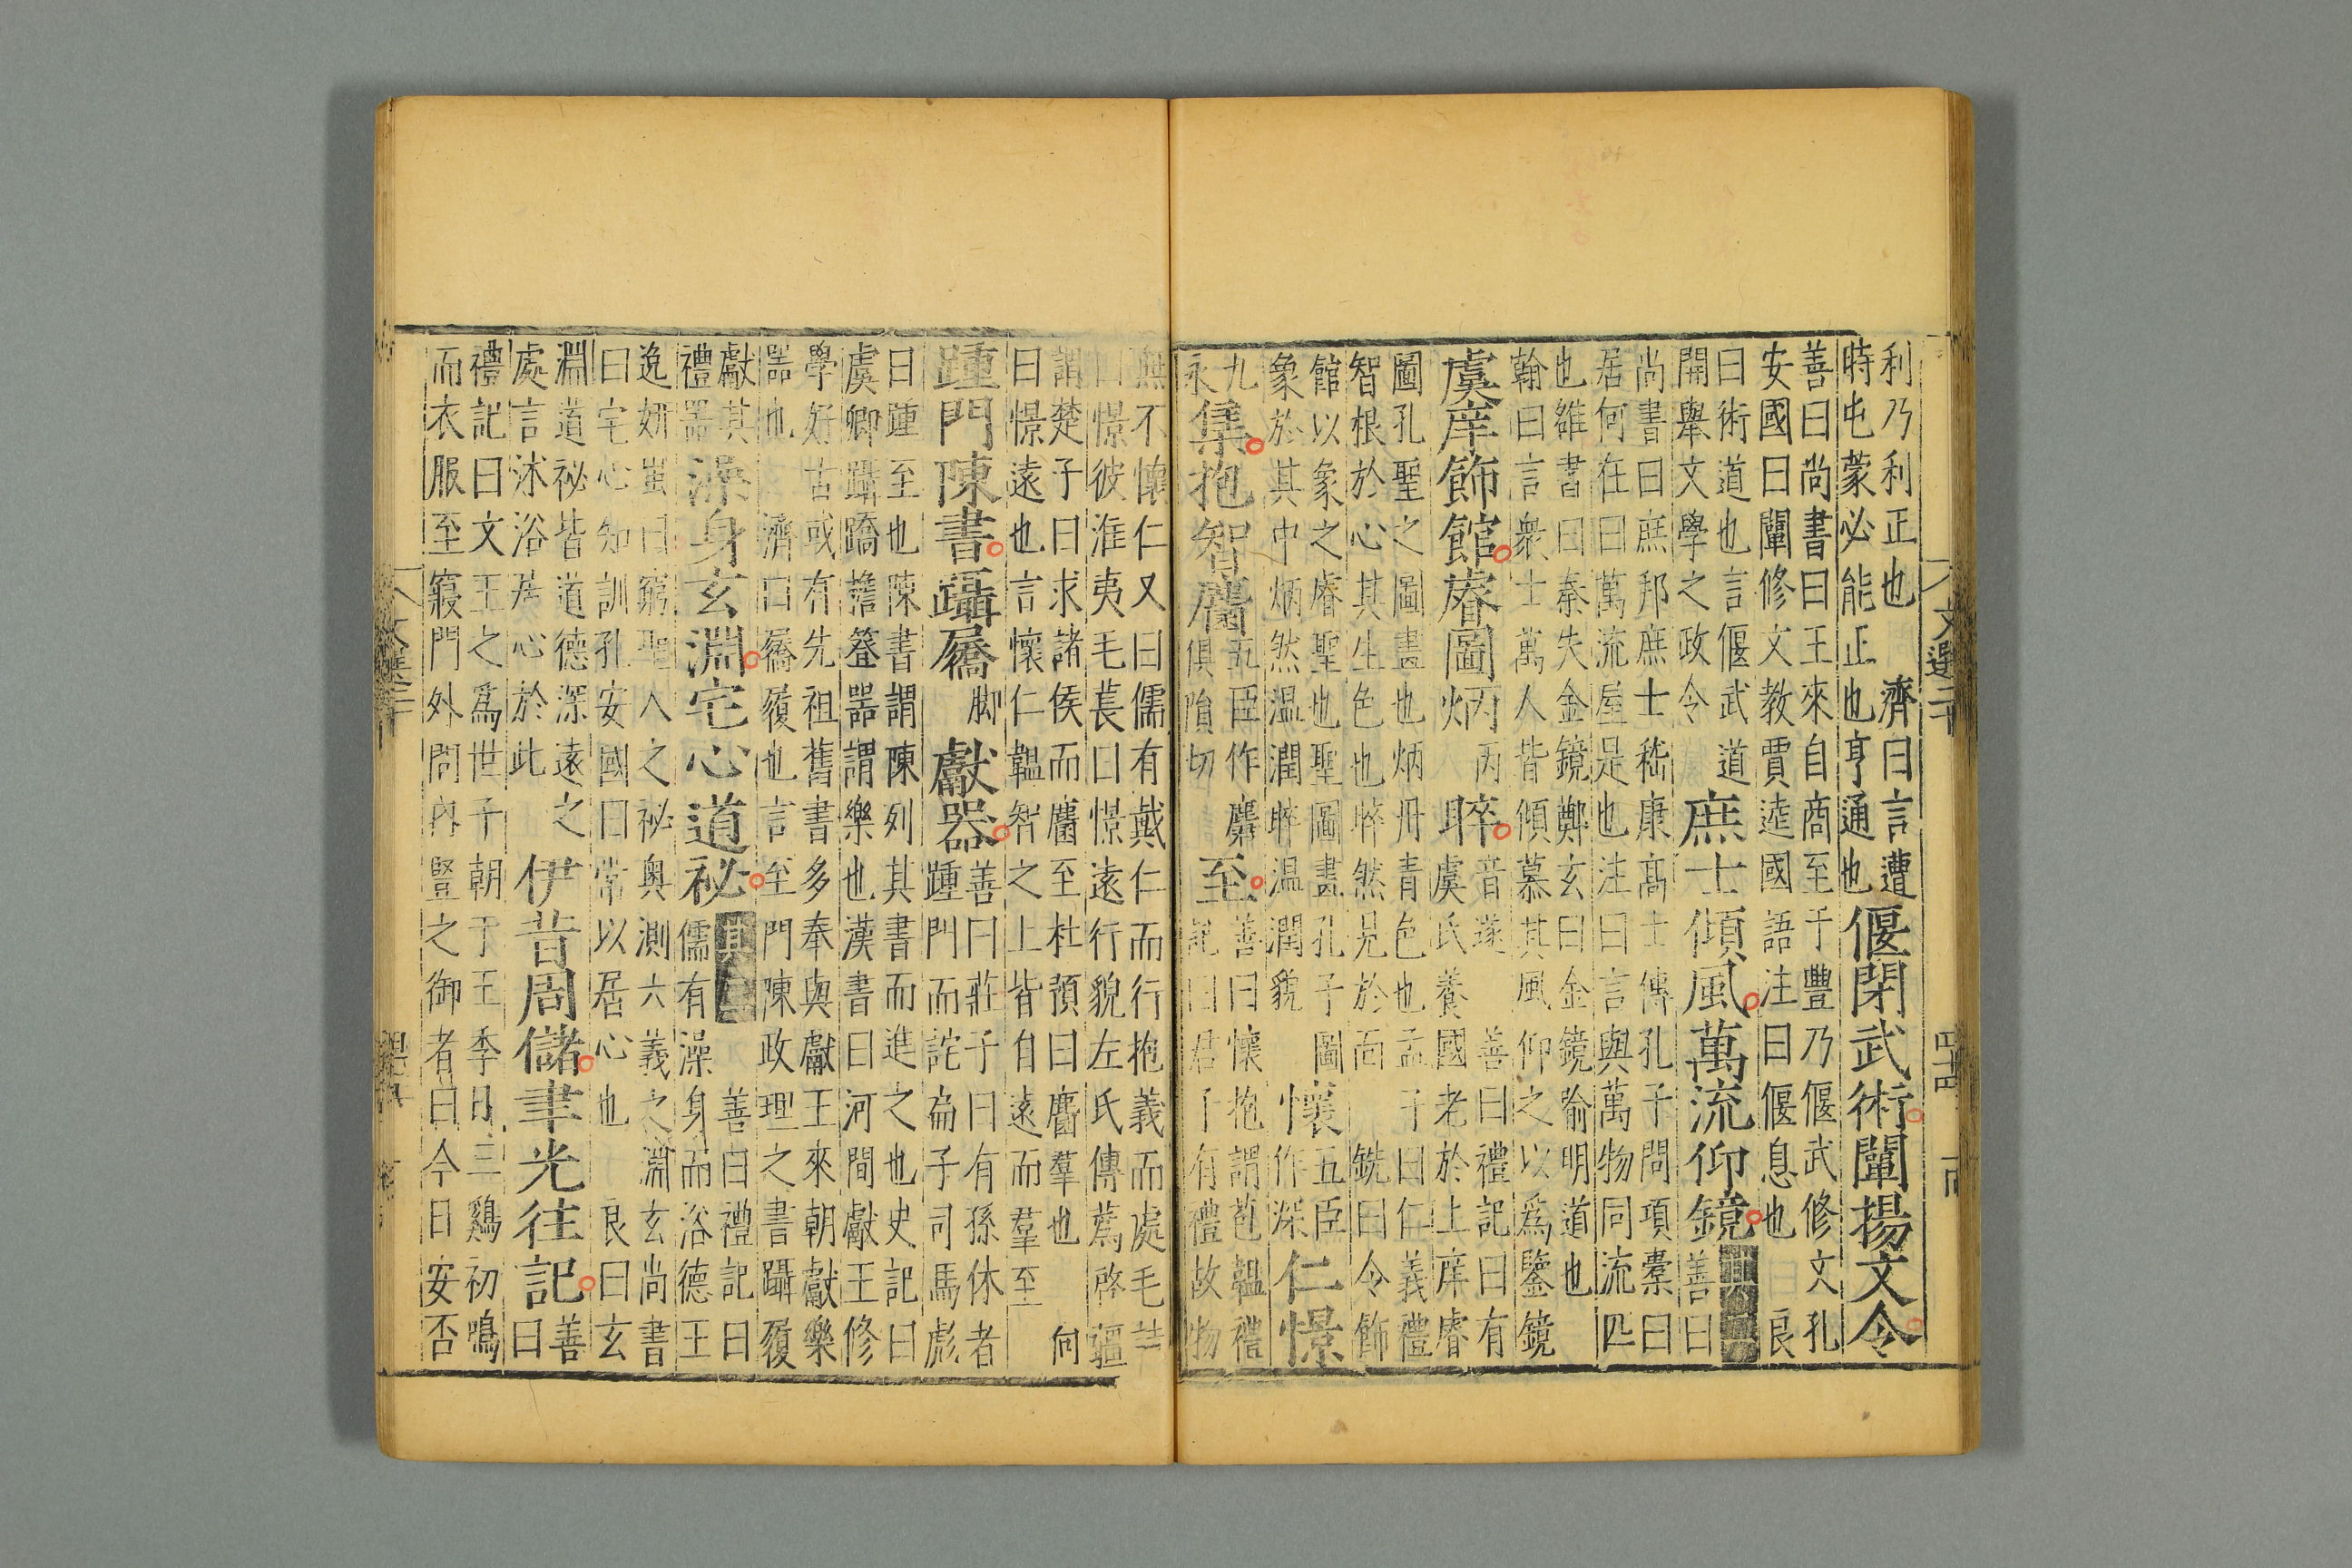 利乃利正也　濟曰言遭
時屯蒙必能正也亨通也
偃閉武術闡揚文令
善曰尚書曰王來自商至于豐乃偃武修文孔
安國曰闡修文教賈逵國語注曰偃息也　良
曰術道也言偃武道
開舉文學之政令
庶士傾風萬流仰鏡
善曰
尚書曰庶邦庶士嵇康高士傳孔子問項橐曰
居何在曰萬流屋是也注曰言與萬物同流匹
也雒書曰秦失金鏡鄭玄曰金鏡喻明道也
翰曰言衆士萬人皆傾慕其風仰之以爲鑒鏡
虞庠飾館睿圖炳
丙
睟
音遂　善曰禮記曰有
虞氏養國老於上庠睿
圖孔聖之圖畫也炳丹青色也孟子曰仁義禮
智根於心其生色也睟然見於面　銑曰令飾
館以象之睿聖也聖圖畫孔子圖
象於其中炳然温潤睟温潤貌
懷
五臣
作深
仁憬
九
永
集抱智麏
五臣作麕
俱隕切
至
善曰懷抱謂苞韞禮
記曰君子有禮故物
無不懷仁又曰儒有戴仁而行抱義而處毛詩
曰憬彼淮夷毛萇曰憬遠行貌左氏傳薳啓疆
謂楚子曰求諸侯而麏至杜預曰麏羣也　向
曰憬遠也言懷仁韞智之上皆自遠而羣至
踵門陳書躡屩
脚
獻器
善曰莊子曰有孫休者
踵門而詫扁子司馬彪
曰踵至也陳書謂陳列其書而進之也史記曰
虞卿躡蹻擔簦器謂樂也漢書曰河間獻王修
學好古或有先祖舊書多奉與獻王來朝獻樂
器也　濟曰屩履也言至門陳政理之書躡履
獻其
禮器
澡身玄淵宅心道祕
善曰禮記曰
儒有澡身而浴德王
逸妍蚩曰窮聖人之祕奥測六義之淵玄尚書
曰宅心知訓孔安國曰常以居心也　良曰玄
淵道祕皆道德深遠之
處言沐浴居心於此
伊昔周儲聿光往記
善
曰
禮記曰文王之爲世子朝于王季日三鷄初鳴
而衣服至寢門外問内豎之御者曰今日安否
文選二十